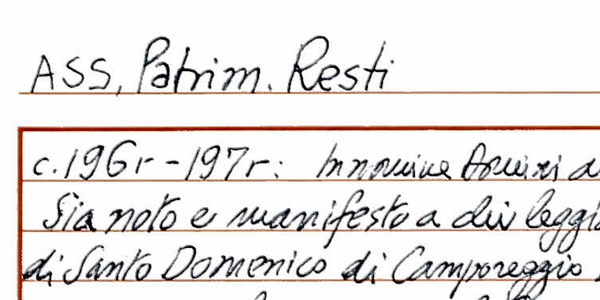 ASS, Patrim. Resti
c. 196r - 197r: In nomine Domini a
Sia noto e manifesto a chi leggi
di Santo Domenico di Camporeggio